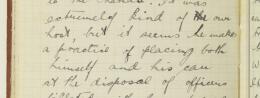 to the chateau. It was
extremely kind of our own
host, but it seems he makes
a practice of placing both
himself and his car
at the disposal of officers